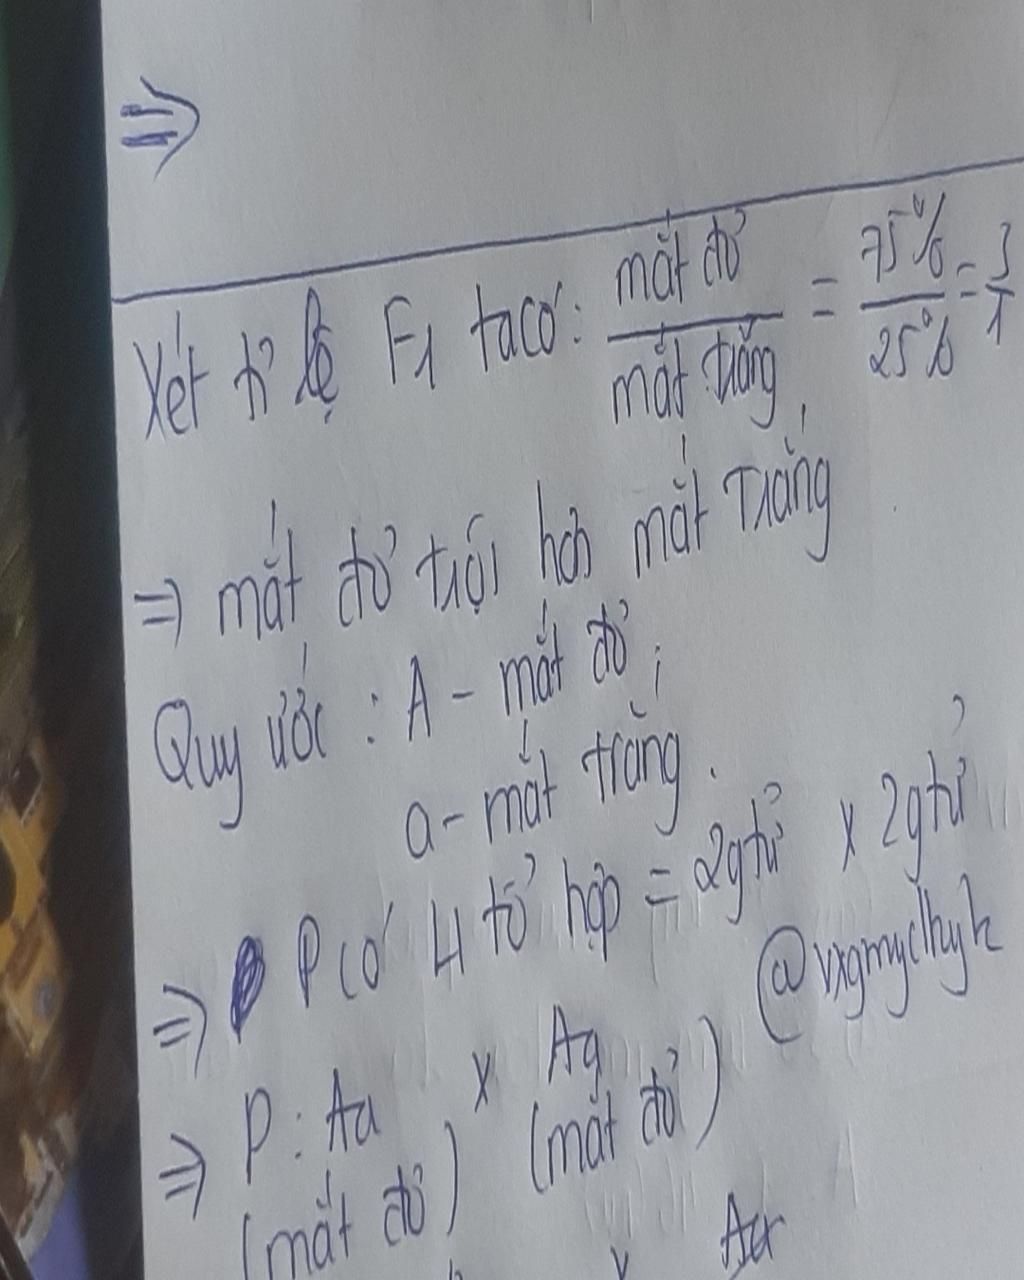 ⇒
Xét tỉ lệ F1 ta có: mắt đỏ / mắt trắng = 75% / 25% = 3/1
⇒ mắt đỏ trội hơn mắt Trắng
Quy ước : A - mắt đỏ ;
a - mắt trắng .
⇒ P có 4 tổ hợp = 2gtử x 2gtử
@vxgmyclhyk
⇒ P : Aa x Aa
(mắt đỏ) (mắt đỏ)
x Aa